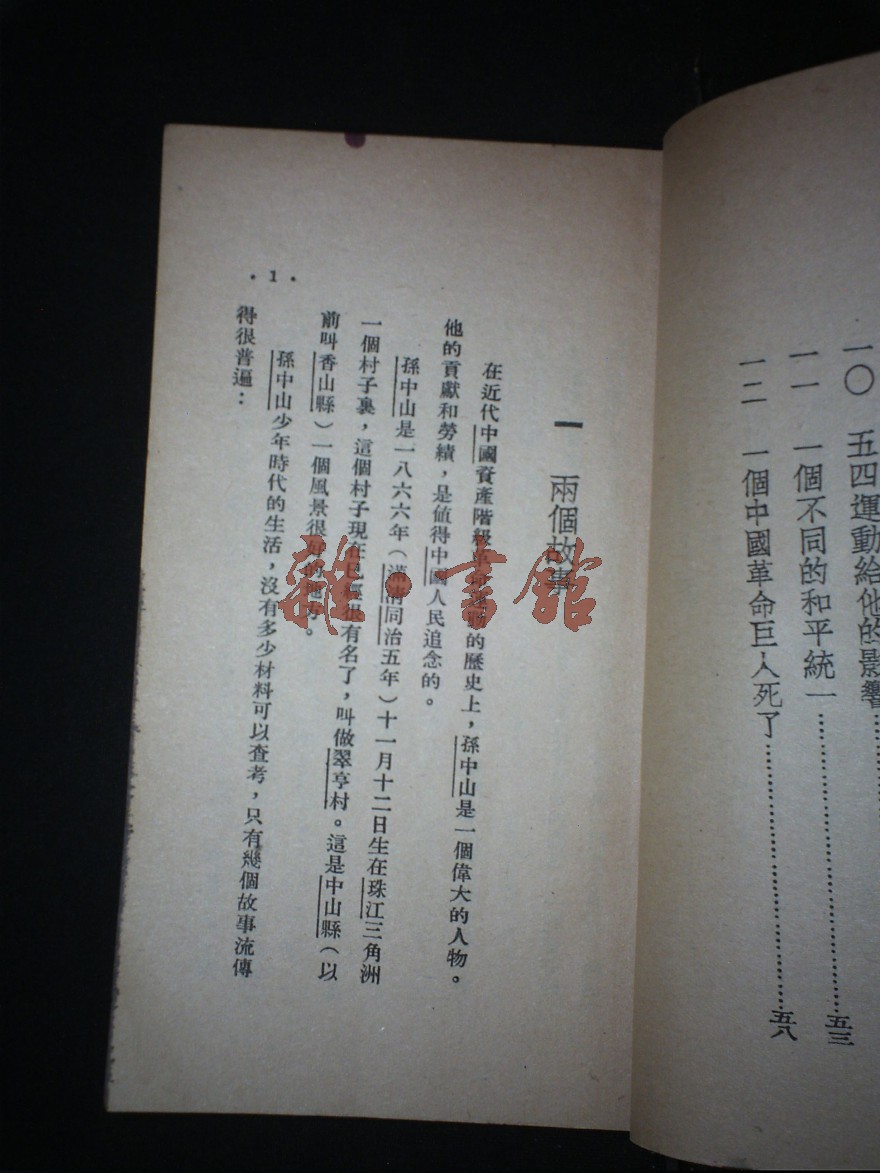 一〇 五四運動給他的影響
一一 一個不同的和平統一……五三
一二 一個中國革命巨人死了……五八
一 兩個故事
在近代中國資產階級革命運動的歷史上，孫中山是一個偉大的人物。
他的貢獻和勞績，是値得中國人民追念的。
孫中山是一八六六年（滿清同治五年）十一月十二日生在珠江三角洲
一個村子裏，這個村子現在已經很有名了，叫做翠亨村。這是中山縣（以
前叫香山縣）一個風景很好的地方。
孫中山少年時代的生活，沒有多少材料可以查考，只有幾個故事流傳
得很普遍：
• 1 •
雜·書館